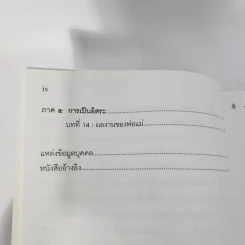 iv
ภาค ๕ การเป็นอิสระ
บทที่ 14 : ผลงานของพ่อแม่
แหล่งข้อมูลบุคคล
หนังสืออ้างอิง